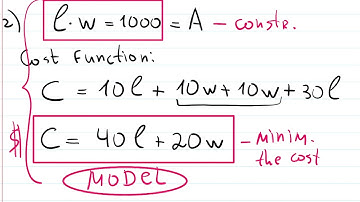 2) l · w = 1000 = A - constr.
Cost Function:
C = 10l + 10w + 10w + 30l
$ C = 40l + 20w - minim. the cost
MODEL